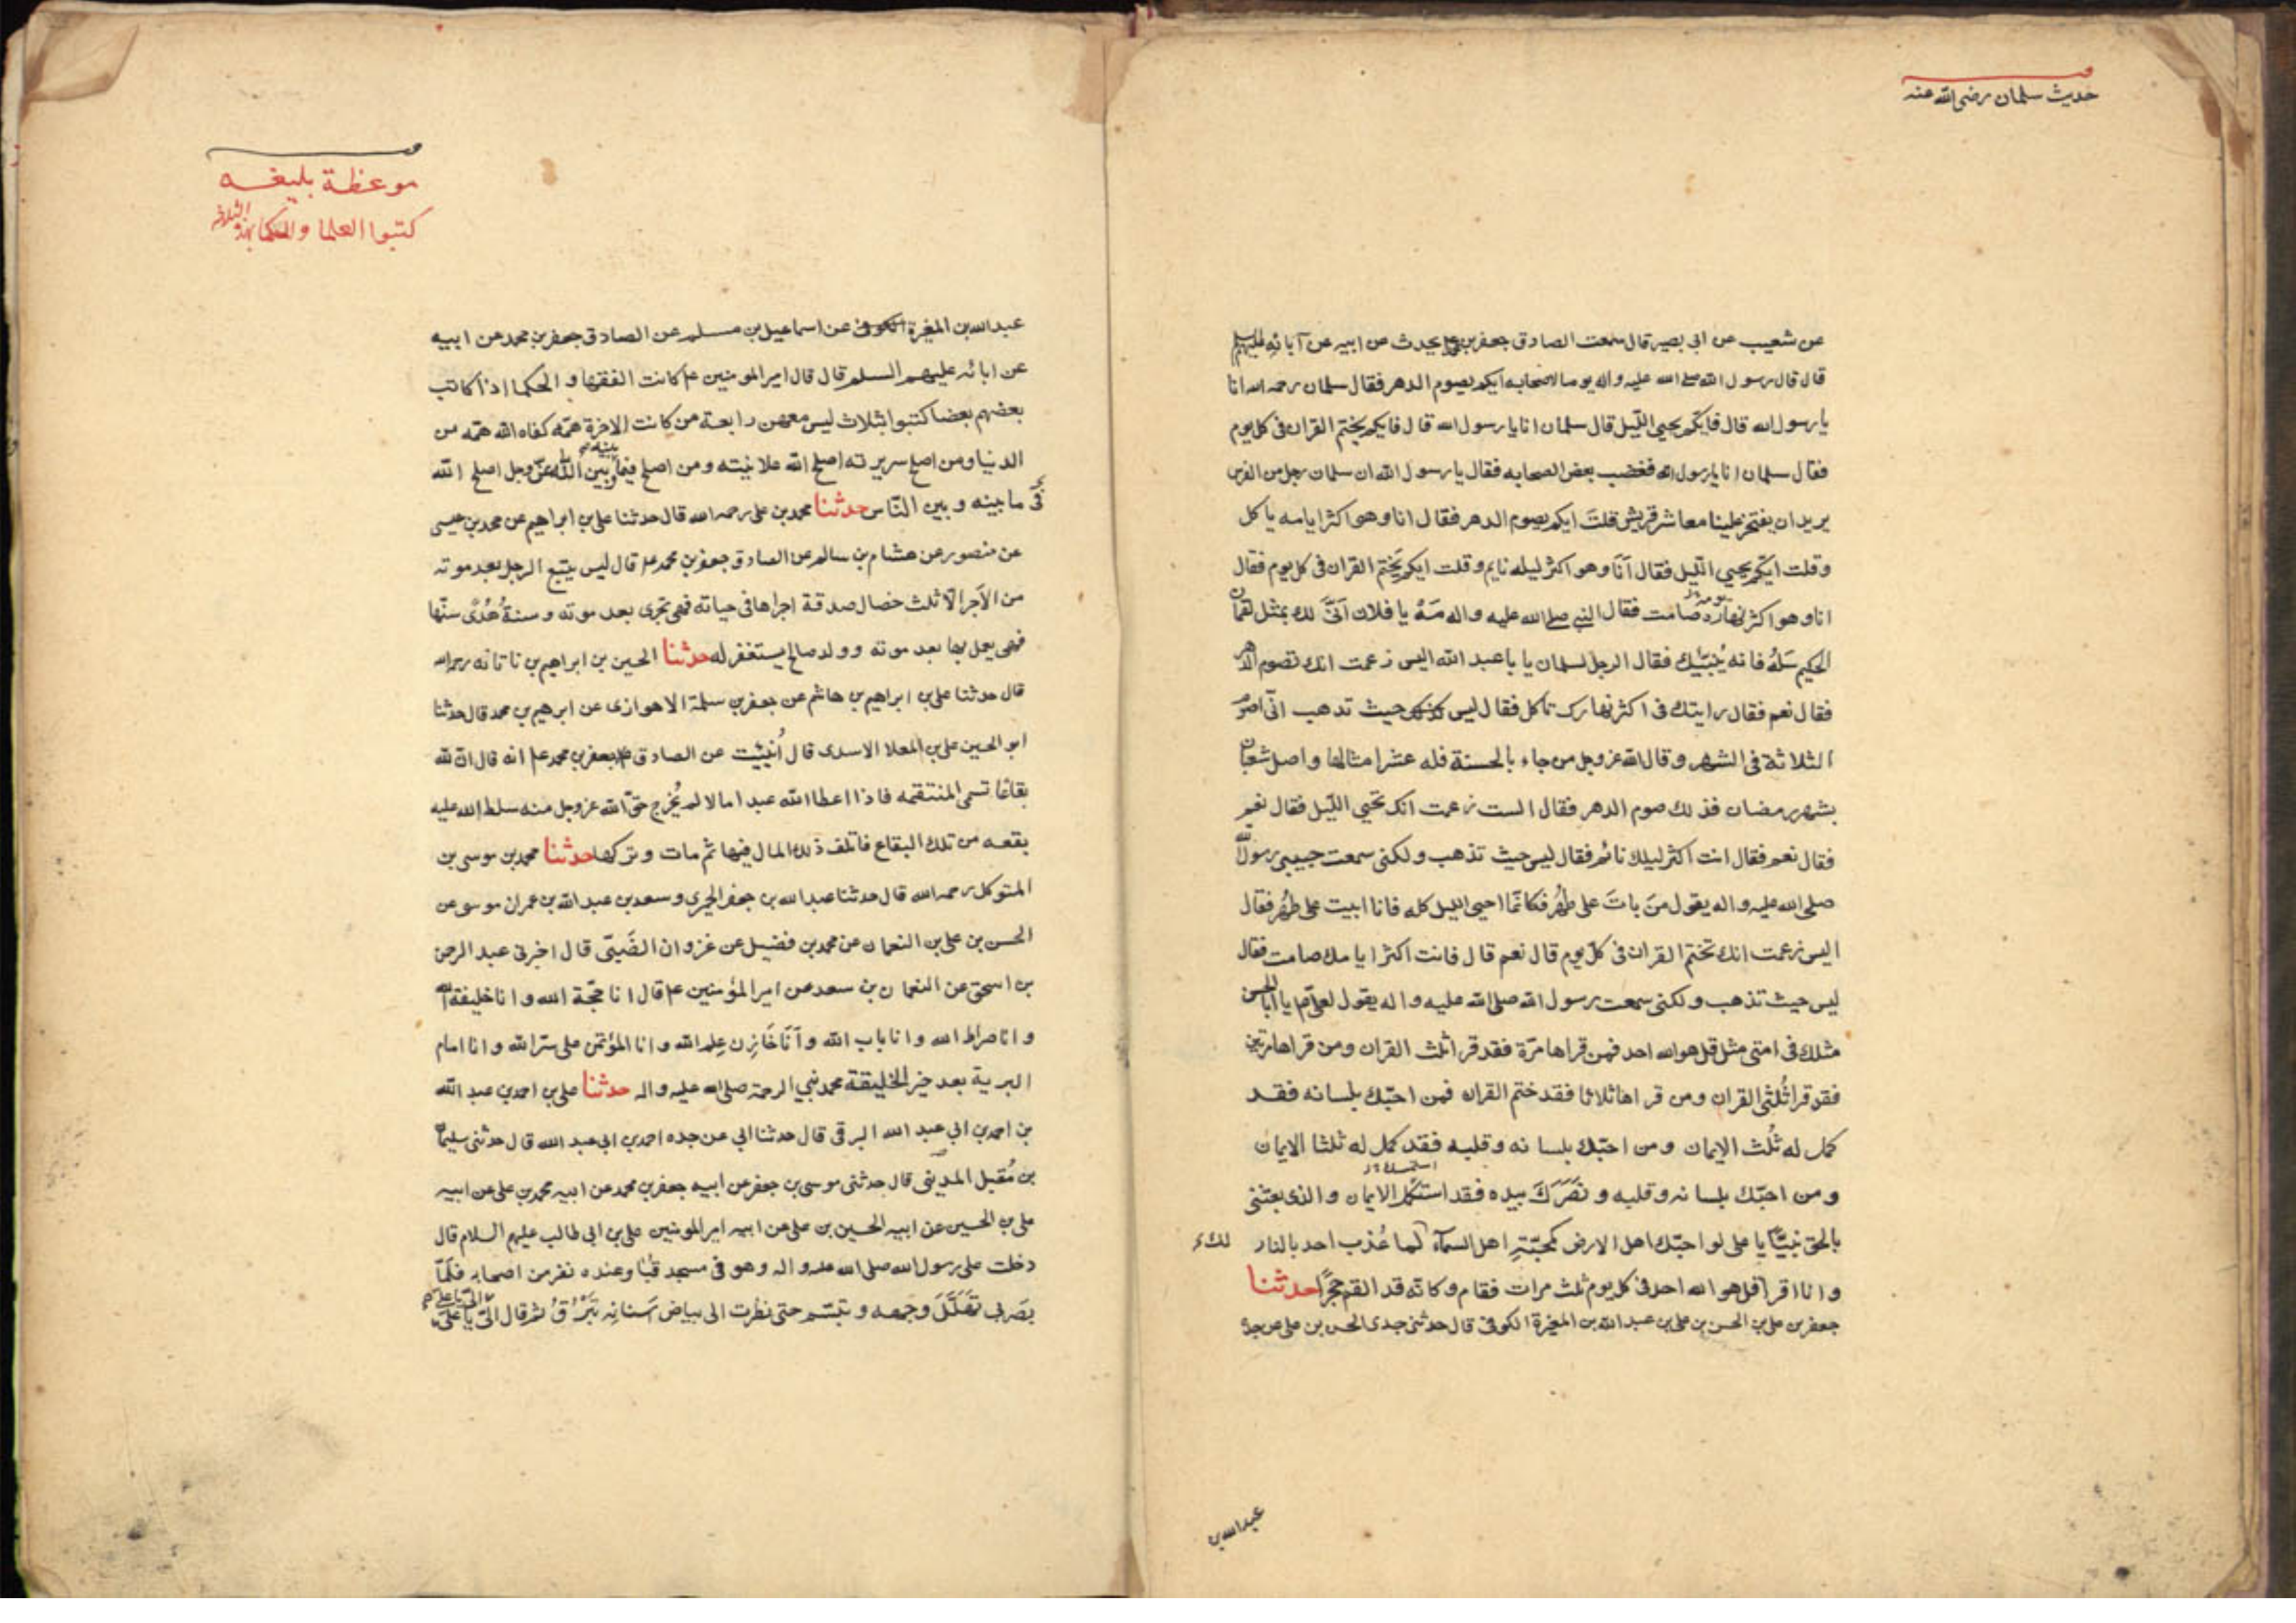 حديث سلمان رضى الله عنه
عن شعيب عن ابى بصير قال سمعت الصادق جعفر بن محمد يحدث عن ابيه عن آبائه عليهم السلم
قال قال رسول الله صلى الله عليه واله يوما لاصحابه ايكم يصوم الدهر فقال سلمان رحمه الله انا
يا رسول الله قال فايكم يحيى الليل قال سلمان انا يا رسول الله قال فايكم يختم القران فى كل يوم
فقال سلمان انا يا رسول الله فغضب بعض الصحابه فقال يا رسول الله ان سلمان رجل من الفرس
يريد ان يفتخر علينا معاشر قريش قلت ايكم يصوم الدهر فقال انا وهو اكثر ايامه ياكل
وقلت ايكم يحيي الليل فقال أنا وهو اكثر ليله نايم وقلت ايكم يختم القران فى كل يوم فقال
انا وهو اكثر نهاره صامت فقال النبى صلى الله عليه واله مه يا فلان أنى لك بمثل لقمان
الحكيم سله فانه ينبئك فقال الرجل لسلمان يا با عبد الله اليس زعمت انك تصوم الدهر
فقال نعم فقال رايتك فى اكثر نهارك تاكل فقال ليس حيث تذهب انى اصوم
الثلاثة فى الشهر وقال الله عز وجل من جاء بالحسنة فله عشر امثالها واصل شعبان
بشهر رمضان فذلك صوم الدهر فقال الست زعمت انك تحيي الليل فقال نعم
فقال نعم فقال انت اكثر ليلك نائم فقال ليس حيث تذهب ولكنى سمعت حبيبى رسول الله
صلى الله عليه واله يقول من بات على طهر فكانما احيى الليل كله فانا ابيت على طهر فقال
اليس زعمت انك تختم القران فى كل يوم قال نعم قال فانت اكثر ايامك صامت فقال
ليس حيث تذهب ولكنى سمعت رسول الله صلى الله عليه واله يقول لعلى ع يا ابا الحسن
مثلك فى امتى مثل قل هو الله احد فمن قراها مرة فقد قرا ثلث القران ومن قراها مرتين
فقد قرا ثلثى القران ومن قراها ثلاثا فقد ختم القران فمن احبك بلسانه فقد
كمل له ثلث الإيمان ومن احبك بلسانه وقلبه فقد كمل له ثلثا الايمان
ومن احبك بلسانه وقلبه ونصرك بيده فقد استكمل الايمان والذى بعثنى
بالحق نبيا يا على لو احبك اهل الارض كمحبة اهل السمآء لك لما عُذب احد بالنار
وانا اقرا قل هو الله احد فى كل يوم ثلث مرات فقام وكانه قد القم حجرا حدثنا
جعفر بن على بن الحسن بن على بن عبد الله بن المغيرة الكوفى قال حدثنى جدى الحسن بن على عن جده
عبد الله بن
موعظة بليغه
كتبوا العلما والحكما بهذه الثلاثه
عبد الله بن المغيرة الكوفى عن اسماعيل بن مسلم عن الصادق جعفر بن محمد عن ابيه
عن ابائه عليهم السلم قال قال امير المومنين ع كانت الفقها والحكما اذا كاتب
بعضهم بعضا كتبوا بثلاث ليس معهن رابعة من كانت الاخرة همه كفاه الله همه من
الدنيا ومن اصلح سريرته اصلح الله علانيته ومن اصلح فيما بينه وبين الله عز وجل اصلح الله
فى ما بينه وبين الناس حدثنا محمد بن على رحمه الله قال حدثنا على بن ابراهيم عن محمد بن عيسى
عن منصور عن هشام بن سالم عن الصادق جعفر بن محمد ع قال ليس يتبع الرجل بعد موته
من الأجر الا ثلث خصال صدقة اجراها فى حياته فهى تجرى بعد موته وسنة هُدًى سنها
فهى يعمل بها بعد موته وولد صالح يستغفر له حدثنا الحسين بن ابراهيم بن ناتانه رحمه الله
قال حدثنا على بن ابراهيم بن هاشم عن جعفر بن سلمة الاهوازى عن ابرهيم بن محمد قال حدثنا
ابو الحسين على بن المعلا الاسدى قال أُنبئت عن الصادق جعفر بن محمد ع انه قال ان لله
بقاعا تسمى المنتقمه فاذا اعطا الله عبدا مالا لم يُخرج حق الله عز وجل منه سلط الله عليه
بقعه من تلك البقاع فاتلف ذلك المال فيها ثم مات وتركها حدثنا محمد بن موسى بن
المتوكل رحمه الله قال حدثنا عبد الله بن جعفر الحميرى وسعد بن عبد الله بن عمران موسى عن
الحسن بن على بن النعمان عن محمد بن فضيل عن غزوان الضبى قال اخبرنى عبد الرحمن
بن اسحق عن النعمان بن سعد عن امير المؤمنين ع قال انا حجة الله وانا خليفة الله
وانا صراط الله وانا باب الله وأنا خازن علم الله وانا المؤتمن على سر الله وانا امام
البرية بعد خير الخليقة محمد نبي الرحمة صلى الله عليه واله حدثنا على بن احمد بن عبد الله
بن احمد بن ابي عبد الله البرقى قال حدثنا ابي عن جده احمد بن ابي عبد الله قال حدثنى سليمان
بن مُقبل المدينى قال حدثنى موسى بن جعفر عن ابيه جعفر بن محمد عن ابيه محمد بن على عن ابيه
على بن الحسين عن ابيه الحسين بن على عن ابيه امير المومنين على بن ابى طالب عليهم السلام قال
دخلت على رسول الله صلى الله عليه واله وهو فى مسجد قُبا وعنده نفر من اصحابه فلما
بصر بى تهلل وجهه وتبسم حتى نظرت الى بياض اسنانه تبرق ثم قال الىّ يا على